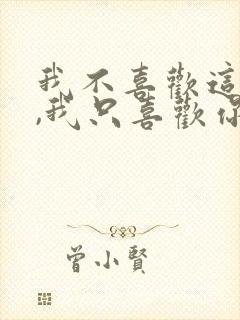 我不喜歡這
,我只喜歡你
曾小賢